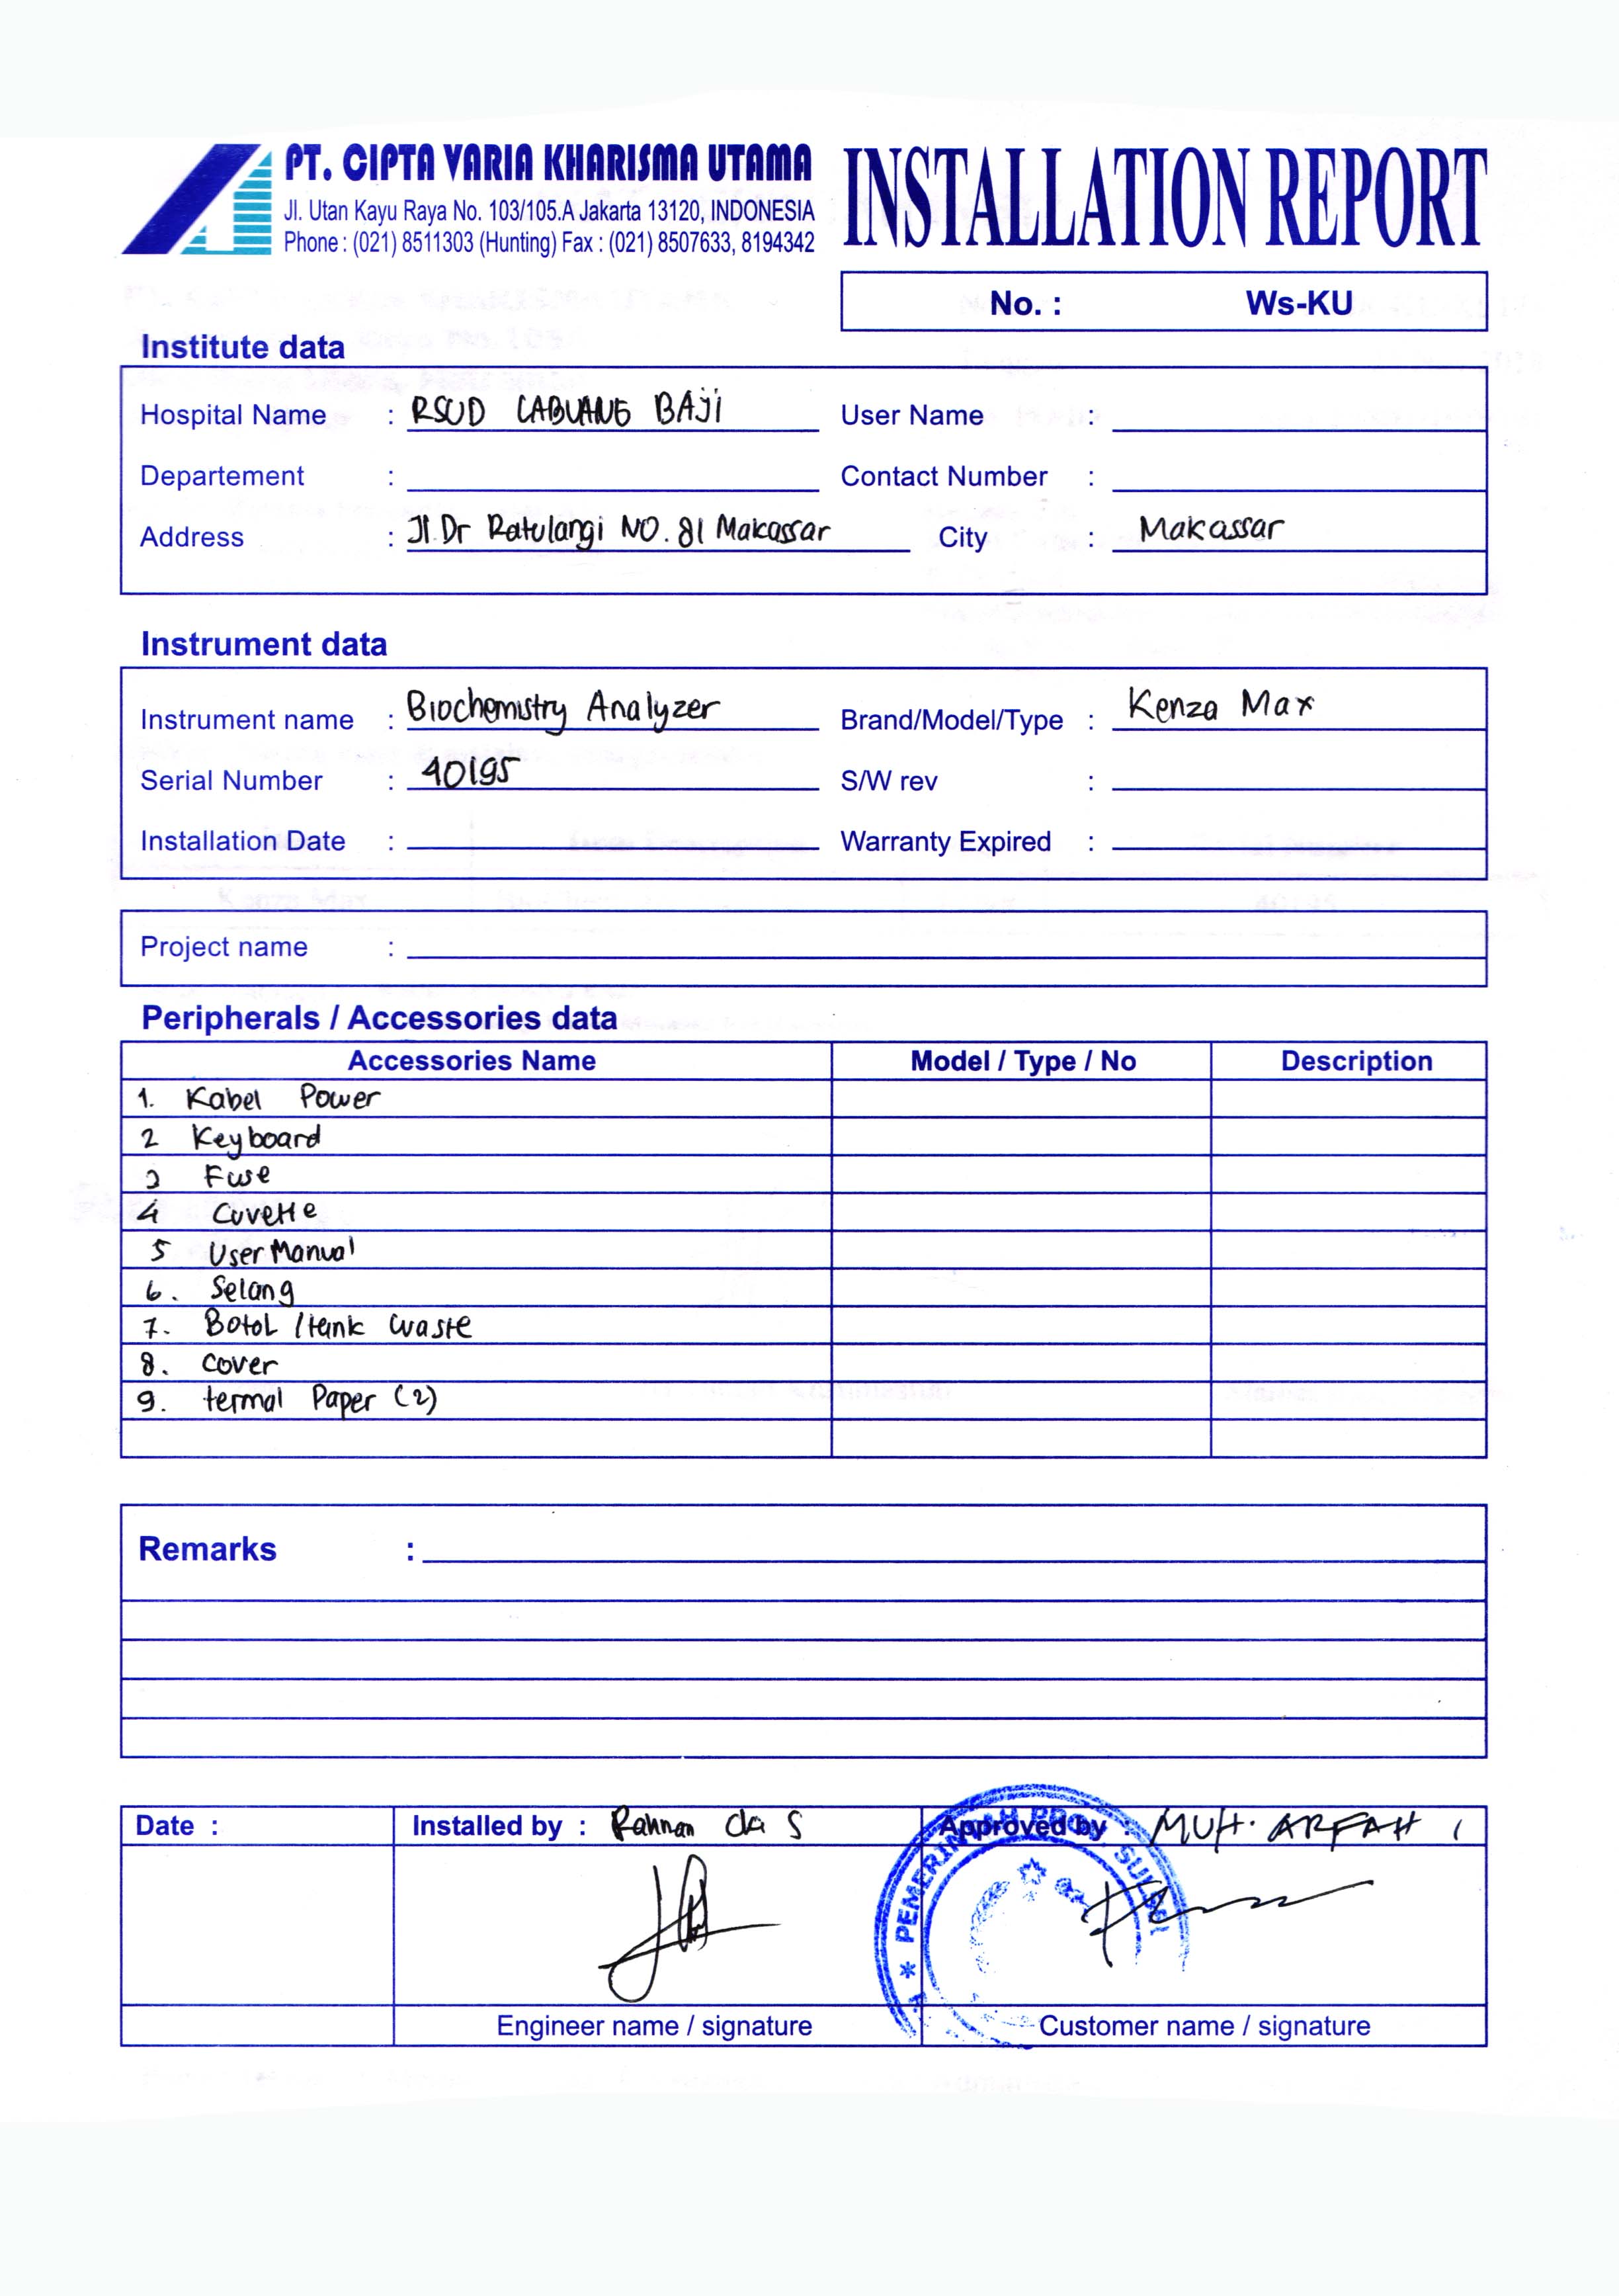 PT. CIPTA VARIA KHARISMA UTAMA
Jl. Utan Kayu Raya No. 103/105.A Jakarta 13120, INDONESIA
Phone : (021) 8511303 (Hunting) Fax : (021) 8507633, 8194342
INSTALLATION REPORT
No. : Ws-KU
Institute data
Hospital Name : RSUD LABUANG BAJI User Name :
Departement : Contact Number :
Address : Jl.Dr Ratulangi NO. 81 Makassar City : Makassar
Instrument data
Instrument name : Biochemistry Analyzer Brand/Model/Type : Kenza Max
Serial Number : 40195 S/W rev :
Installation Date : Warranty Expired :
Project name :
Peripherals / Accessories data
Accessories Name Model / Type / No Description
1. Kabel Power
2 Keyboard
3 Fuse
4 Cuvette
5 User Manual
6. Selang
7. Botol / tank waste
8. cover
9. termal Paper (2)
Remarks :
Date : Installed by : Rahman Approved by : MUH. ARFAH
PEMERINTAH PROV SUL
Engineer name / signature Customer name / signature